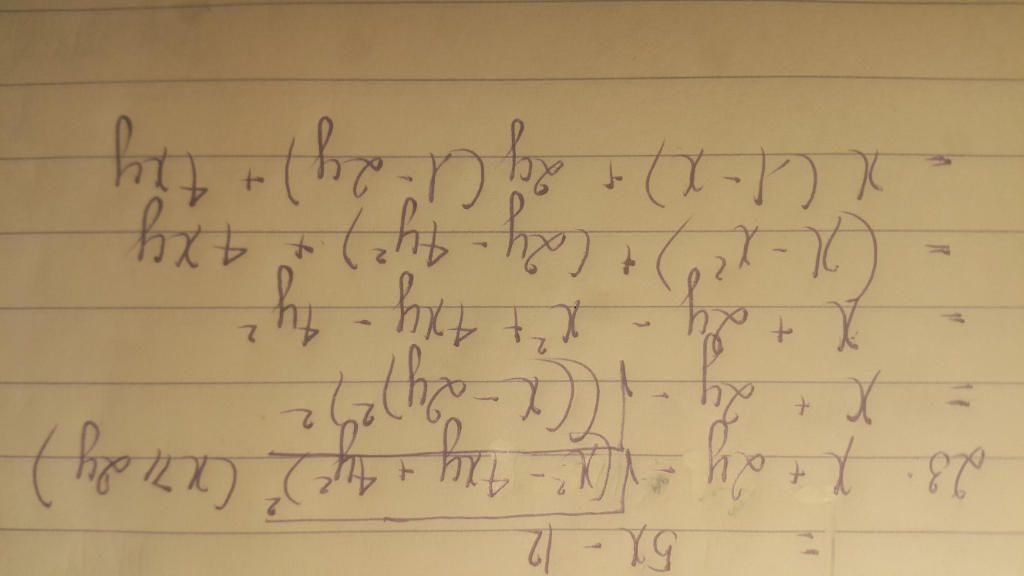 = 5x - 12
23. x + 2y - √(x² - 4xy + 4y²)² (x ⩾ 2y)
= x + 2y - √((x - 2y)²)²
= x + 2y - x² + 4xy - 4y²
= (x - x²) + (2y - 4y²) + 4xy
= x(1 - x) + 2y(1 - 2y) + 4xy